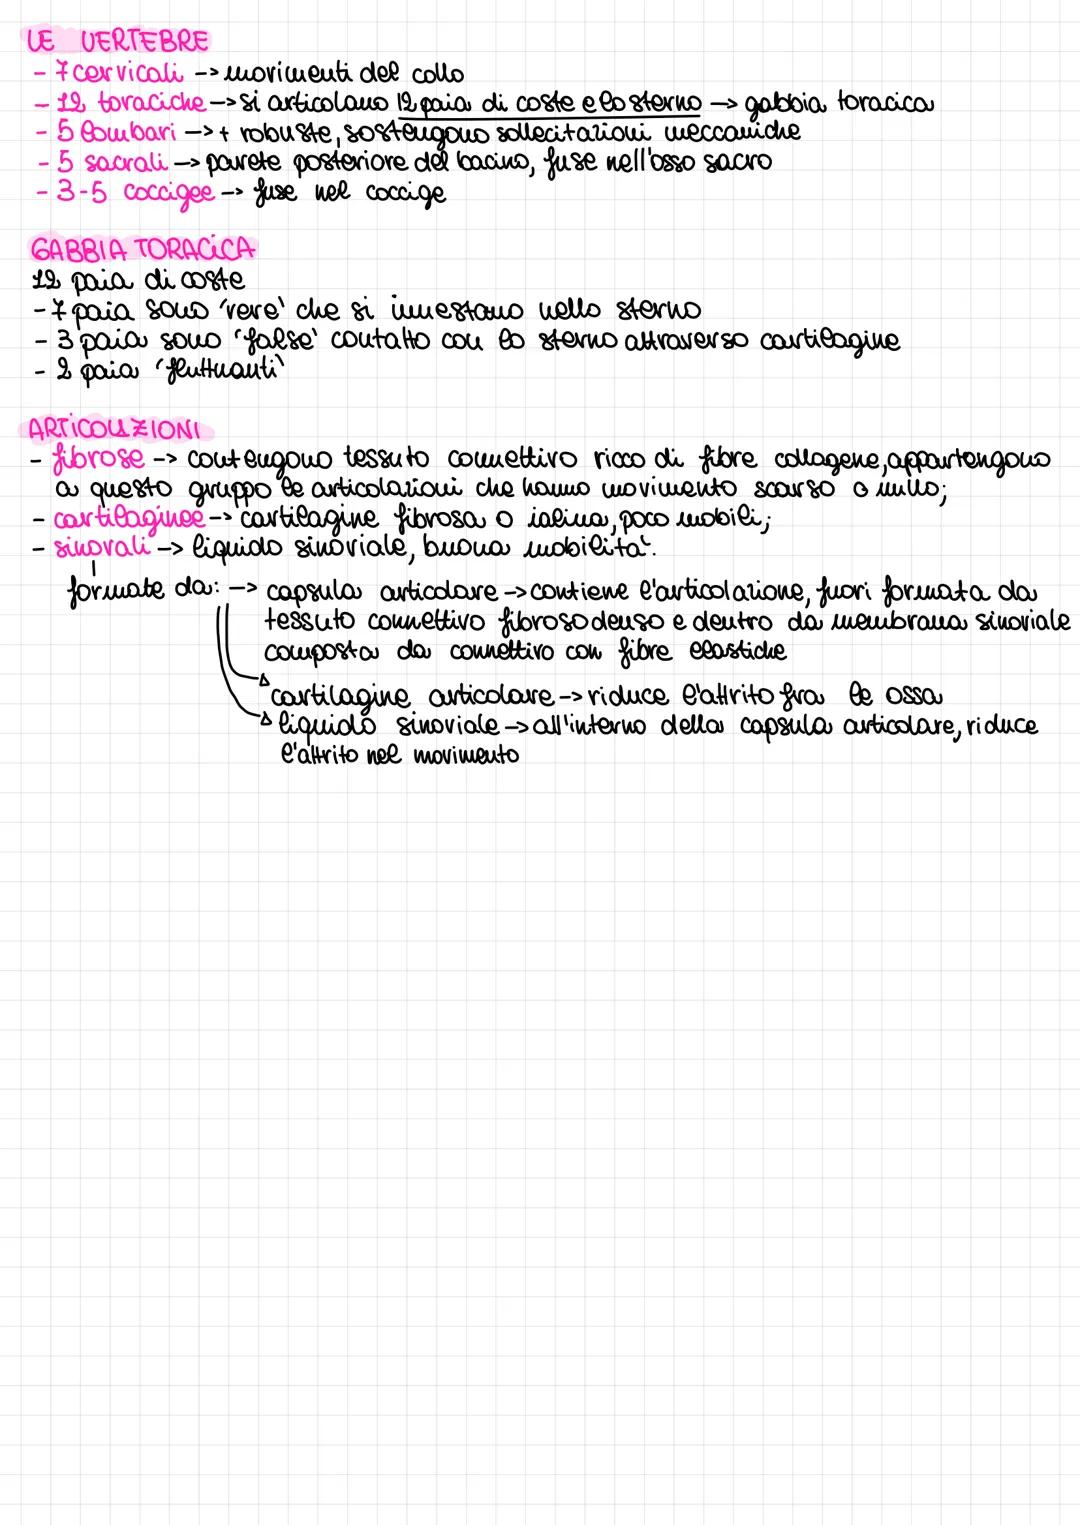 LE VERTEBRE
- 7 cervicali -> movimenti del collo
- 12 toraciche -> si articolano 12 paia di coste e lo sterno -> gabbia toracica
- 5 lombari -> + robuste, sostengono sollecitazioni meccaniche
- 5 sacrali -> parete posteriore del bacino, fuse nell'osso sacro
- 3-5 coccigee -> fuse nel coccige
GABBIA TORACICA
12 paia di coste
- 7 paia sono 'vere' che si innestano nello sterno
- 3 paia sono 'false' contatto con lo sterno attraverso cartilagine
- 2 paia 'fluttuanti'
ARTICOLAZIONI
- fibrose -> contengono tessuto connettivo ricco di fibre collagene, appartengono
a questo gruppo le articolazioni che hanno movimento scarso o nullo;
- cartilaginee -> cartilagine fibrosa o ialina, poco mobili;
- sinovali -> liquido sinoviale, buona mobilità.
formate da: -> capsula articolare -> contiene l'articolazione, fuori formata da
tessuto connettivo fibroso denso e dentro da membrana sinoviale
composta da connettivo con fibre elastiche
cartilagine articolare -> riduce l'attrito fra le ossa
liquido sinoviale -> all'interno della capsula articolare, riduce
l'attrito nel movimento